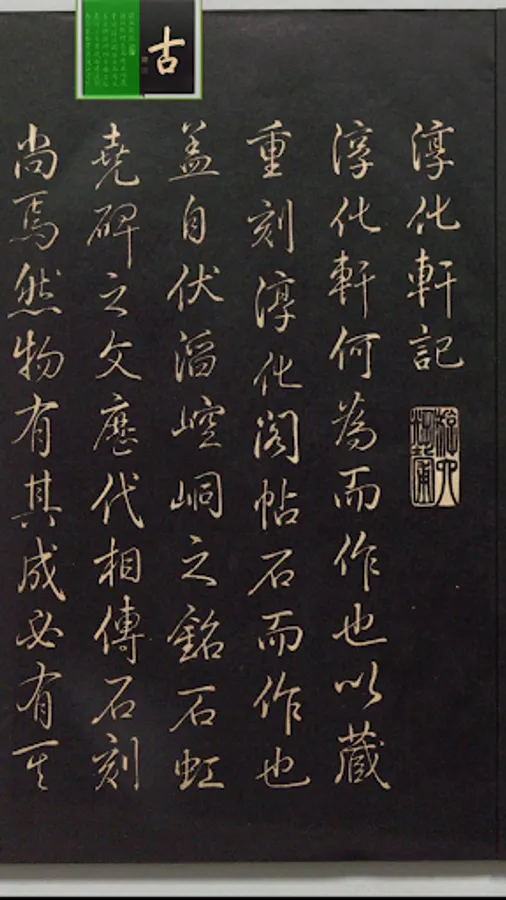 古
淳化軒記
淳化軒何為而作也以藏
重刻淳化閣帖石而作也
蓋自伏滔崆峒之銘石虹
堯碑之文歷代相傳石刻
尚焉然物有其成必有其